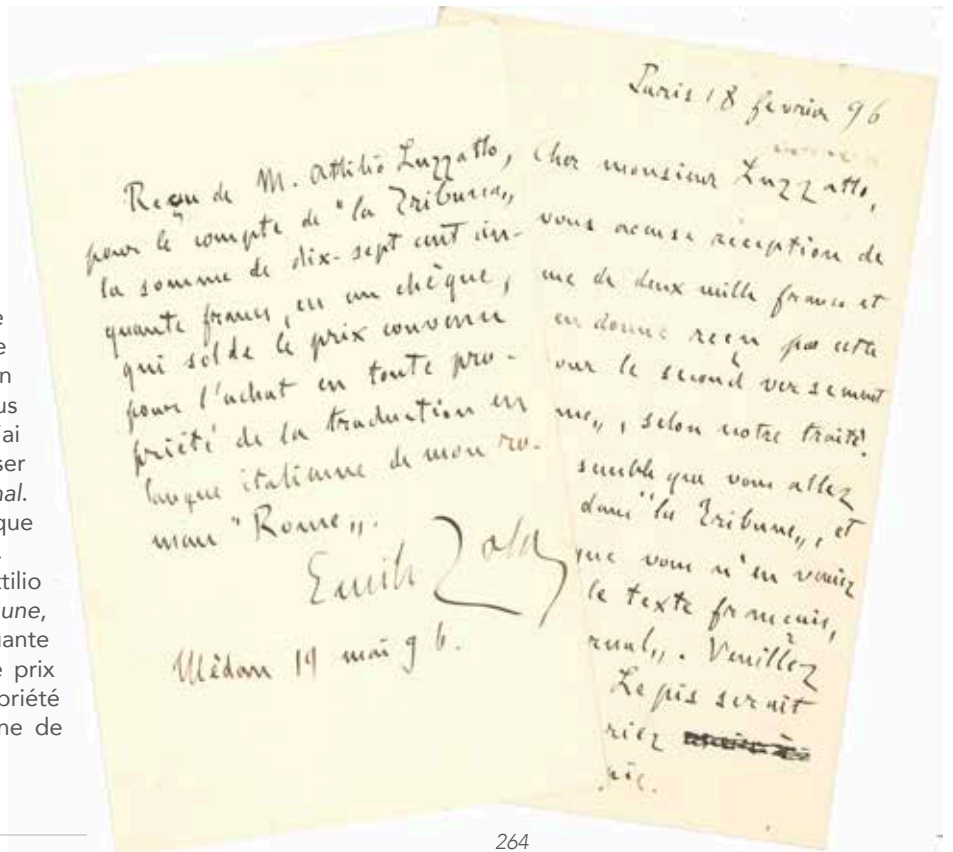 e
e
n
us
'ai
ser
nal.
que
.
ttilio
une,
uante
e prix
priété
ne de
Reçu de M. Attilio Luzzatto,
pour le compte de "la Tribuna„
la somme de dix-sept cent cin-
quante francs, en un chèque,
qui solde le prix convenu
pour l'achat en toute pro-
priété de la traduction en
langue italienne de mon ro-
man "Rome„.
Emile Zola
Médan 19 mai 96.
Paris 18 février 96
Cher monsieur Luzzatto,
vous accuse réception de
me de deux mille francs et
en donne reçu par cette
our le second versement
me„, selon notre traité.
semble que vous allez
dans "la Tribune„, et
que vous n'en veniez
le texte français,
rnal„. Veuillez
Le pis serait
riez
pie.
264